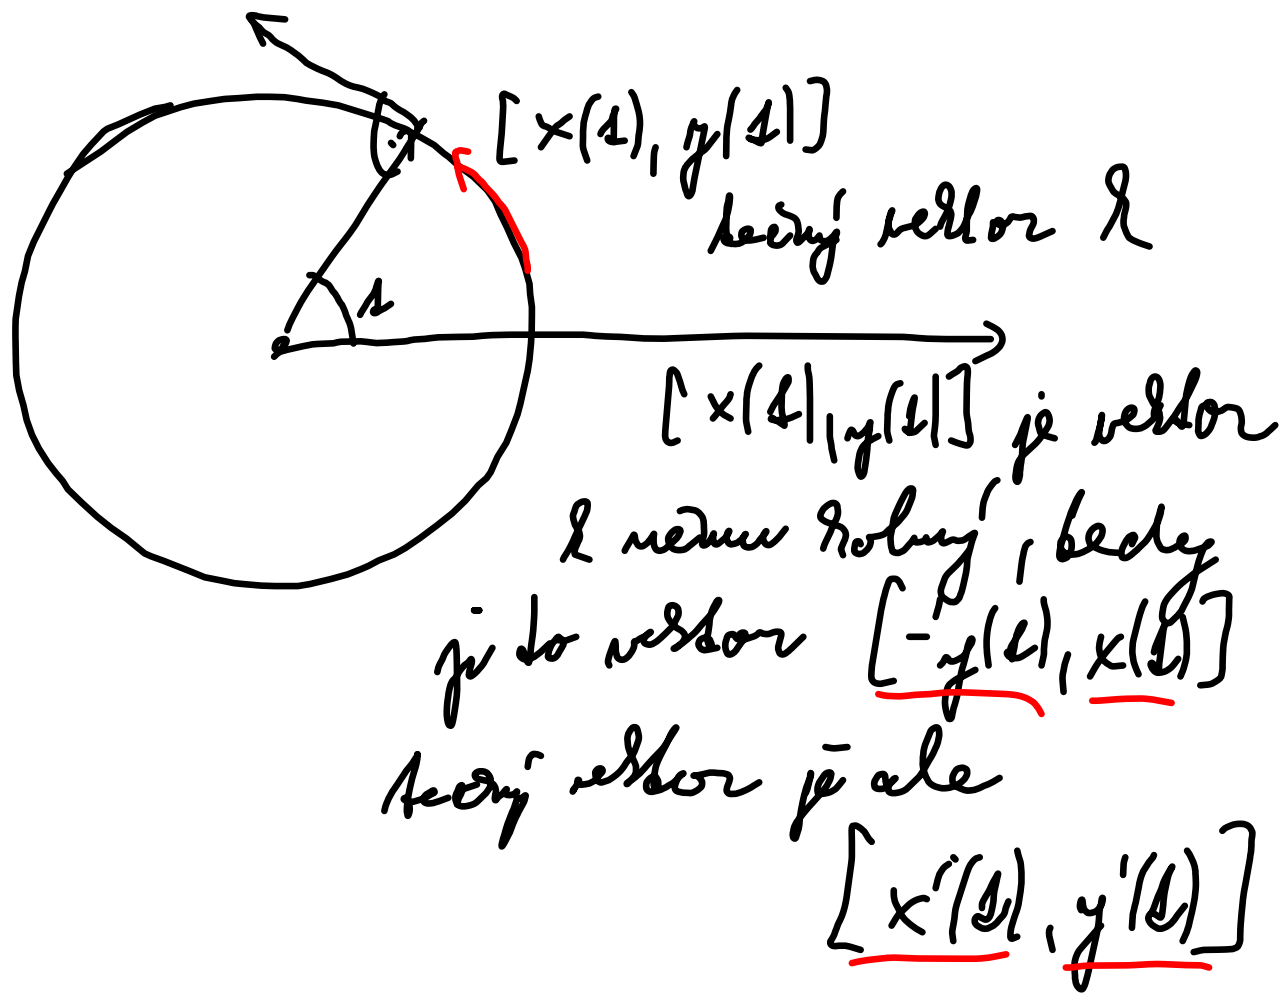 [x(s), y(s)]
tečný vektor k
s
[x(s), y(s)] je vektor
k němu kolmý, tedy
je to vektor [-y(s), x(s)]
tečný vektor je ale
[x'(s), y'(s)]